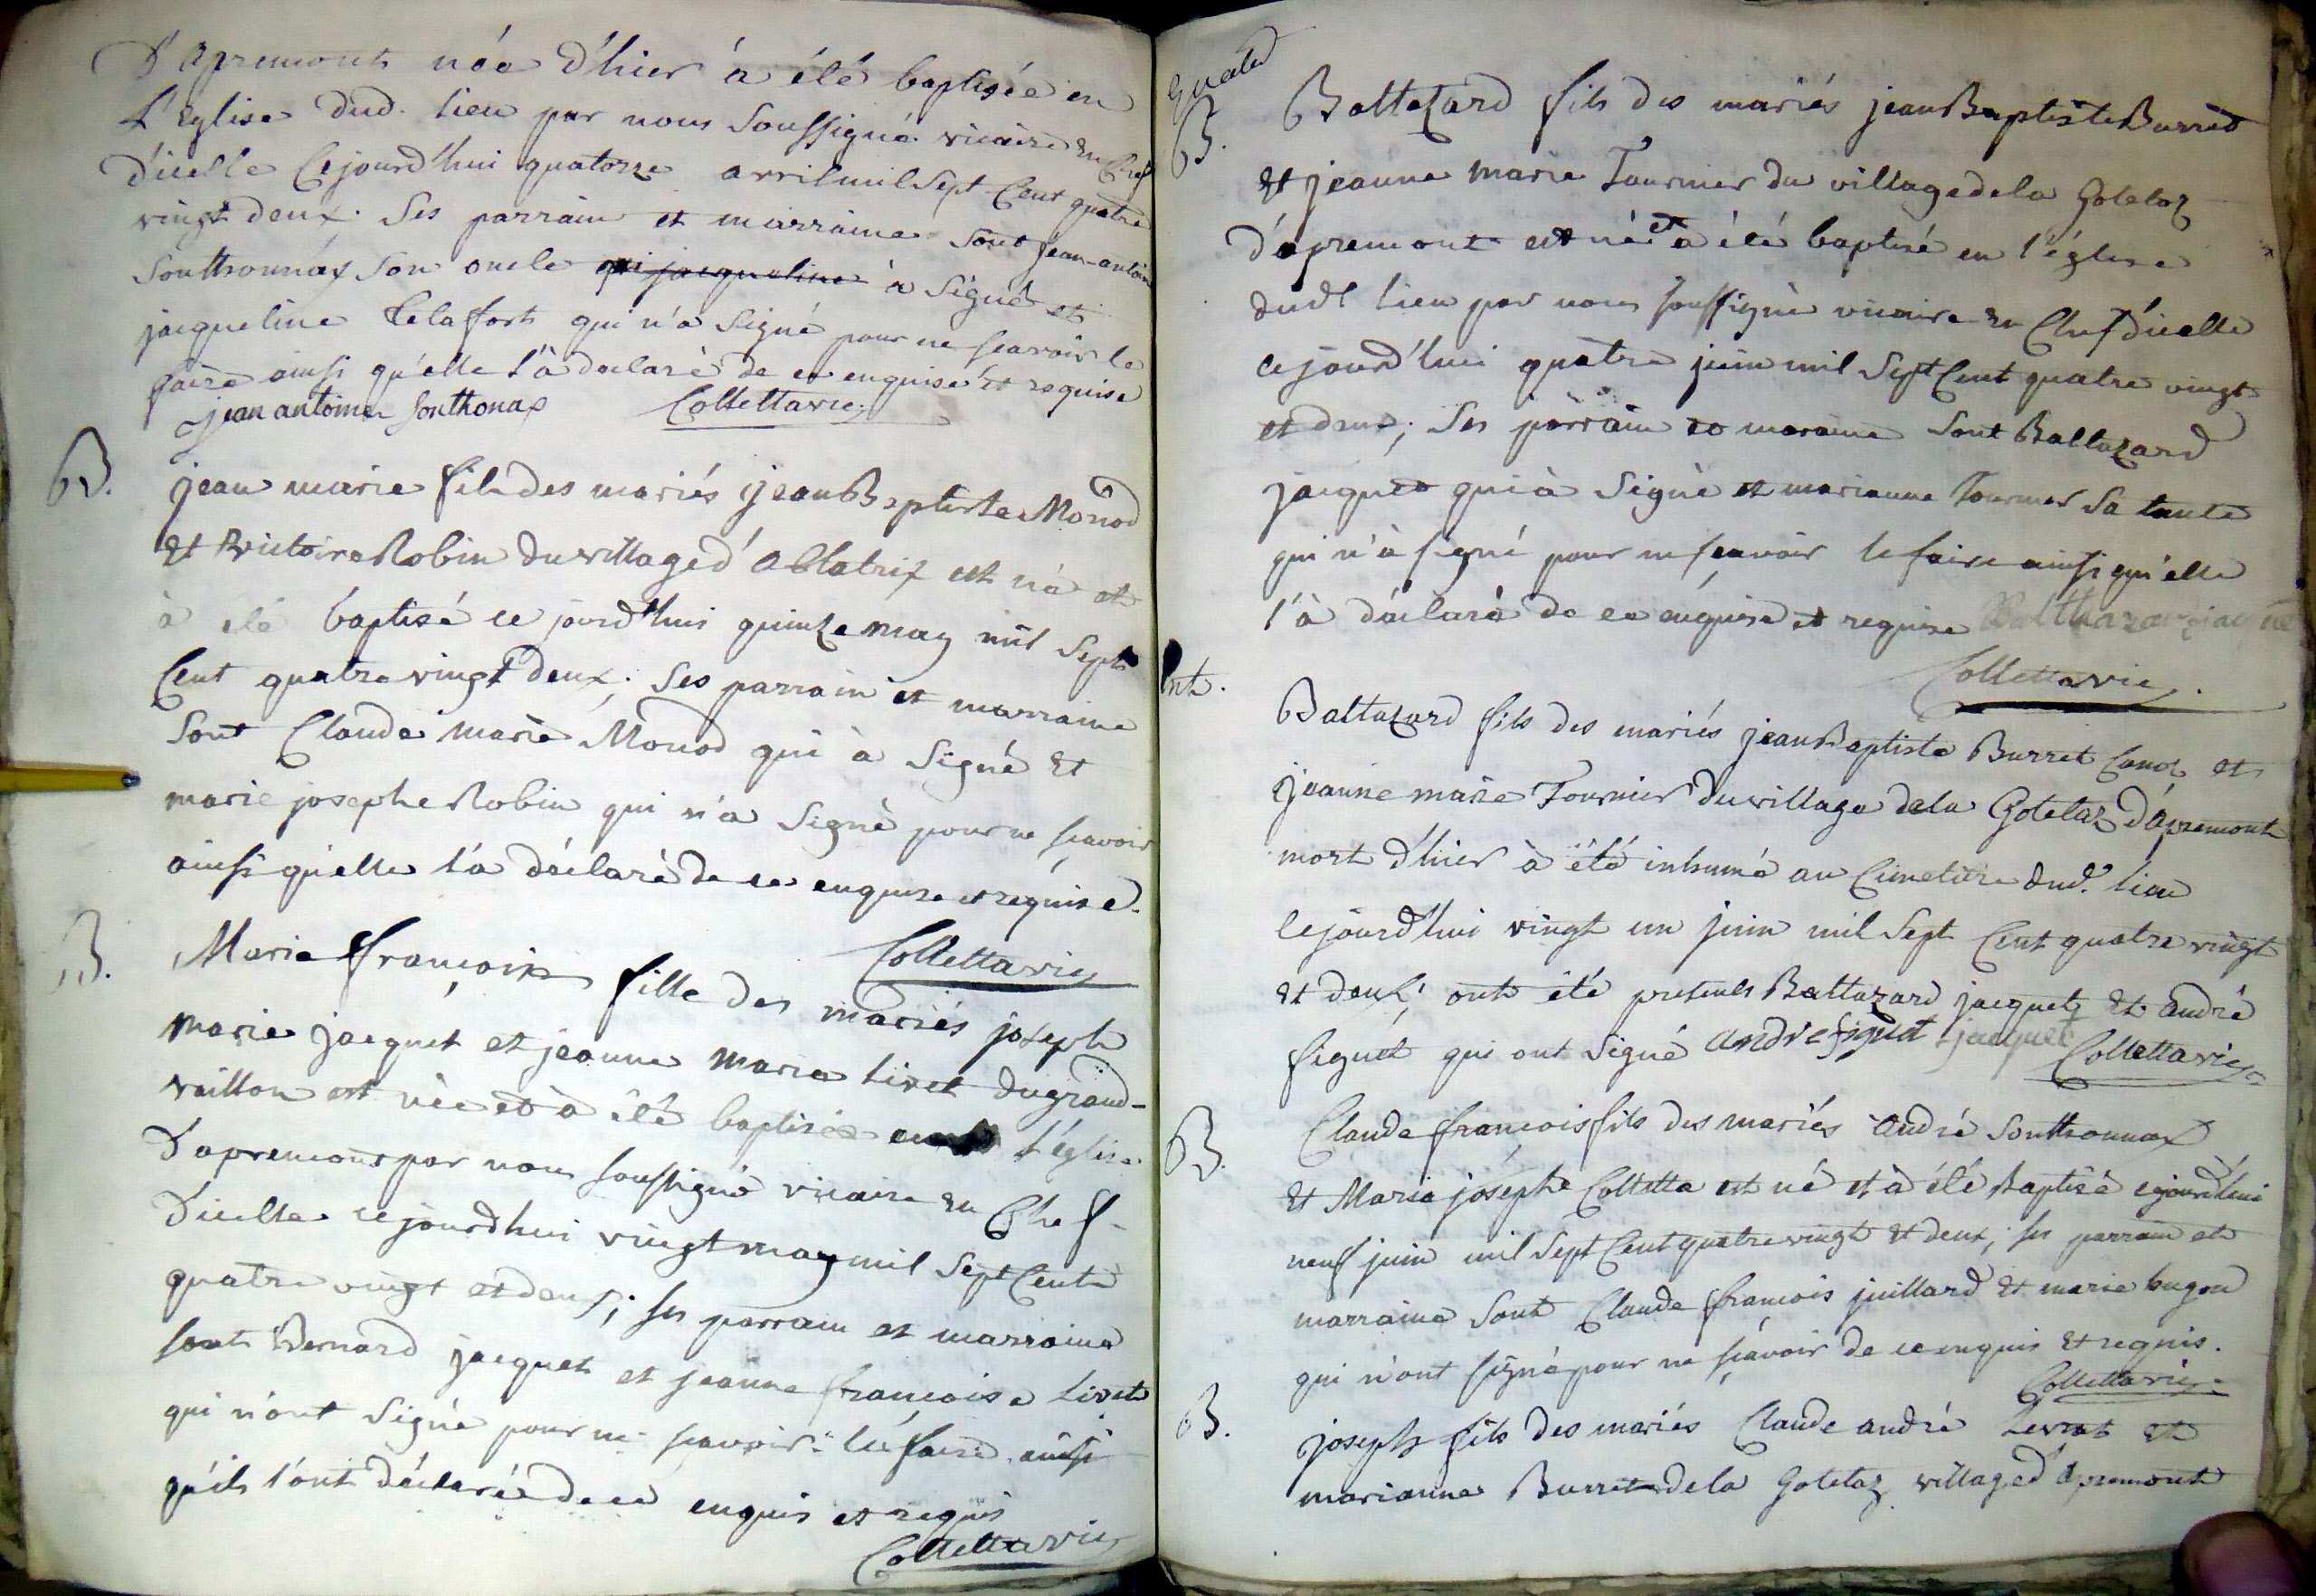 D'Apremont née d'hier à été baptisée en
L'Eglise dud. lieu par nous Soussigné vicaire en Chef
d'icelle Cejourd'hui quatorze avril mil Sept Cent quatre
vingt deux. Ses parrain et marraine Sont jean-antoine
Sonthonnax Son oncle qui jacqueline à Signé et
jacqueline Delafort qui n'a Signé pour ne scavoir le
faire ainsi qu'elle l'à declaré de ce enquise et requise
jean antoine Sonthonax Collettavic.
B. jean marie fils des mariés jean Baptiste Monod
et Victoire Robin du village d'Ablatrix est né et
à été baptisé ce jourd'hui quinze may mil Sept
Cent quatre vingt deux; Ses parrain et marraine
Sont Claude marie Monod qui à Signé Et
marie josephe Robin qui n'a Signé pour ne scavoir
ainsi qu'elle l'a déclaré de ce enquise et requise.
Collettavic
B. Marie françoise fille des mariés joseph
marie jacquet et jeanne Marie livet du grand-
vaillon est née et à été baptisée en l'église
D'apremont par nous soussigné vicaire en Chef
d'icelle cejourdhui vingt may mil Sept Cent
quatre vingt et deux; ses parrain et marraine
sont Bernard jacquet et jeanne françoise livet
qui n'ont Signé pour ne scavoir le faire ainsi
qu'ils l'ont déclaré de ce enquis et requis
Collettavic
B. Baltazard fils des mariés jean Baptiste Burret
et jeanne marie Tournier du village de la Goletaz
d'apremont est né et a été baptisé en l'église
dudt lieu par nous soussigné vicaire en Chef d'icelle
cejourd'hui quatre juin mil Sept Cent quatre vingt
et deux; Ses parrain et maraine Sont Baltazard
jacquet qui à Signé et marianne Tournier Sa tante
qui n'à signé pour ne scavoir le faire ainsi qu'elle
l'à déclaré de ce enquise et requise Balthazar jacquet
Collettavic.
nt. Baltazard fils des mariés jean Baptiste Burret Canoz et
jeanne marie Tournier du village de la Goletaz d'Apremont
mort d'hier à été inhumé au Cimetière dud. lieu
Cejourd'hui vingt un juin mil Sept Cent quatre vingt
et deux; ont été presents Baltazard jacquet et andré
figuet qui ont Signé andré figuet jacquet Collettavic
B. Claude françois fils des mariés andré Sonthonnax
et Marie josephe Colletta est né et à été Baptisé cejourd'hui
neuf juin mil Sept Cent quatre vingt et deux; ses parrain et
marraine Sont Claude françois juillard et marie hugon
qui n'ont signé pour ne scavoir de ce enquis et requis.
Collettavic
B. joseph fils des mariés Claude andré Levrat et
marianne Burret de la Goletaz village d'Apremont